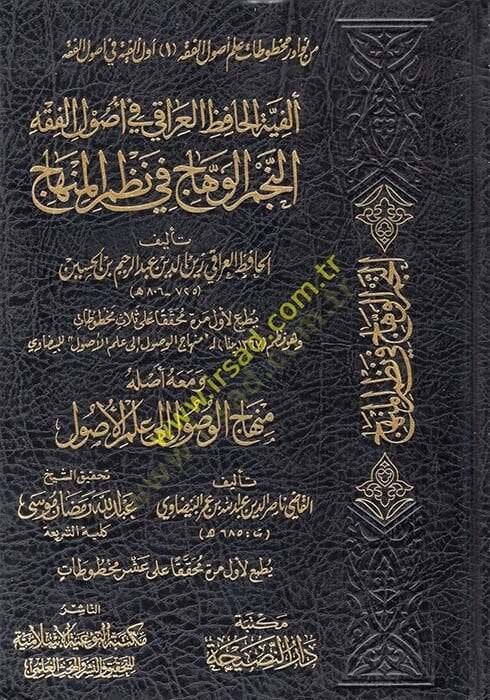 من نوادر مخطوطات علم أصول الفقه (١) أول ألفية في أصول الفقه
ألفية الحافظ العراقي في أصول الفقه
النجم الوهاج في نظم المنهاج
تأليف
الحافظ العراقي زين الدين عبد الرحيم بن الحسين
(٧٢٥ - ٨٠٦ هـ)
يطبع لأول مرة محققا على ثلاث مخطوطات
وهو نظم (١٣٦٧ بيتا) لـ "منهاج الوصول إلى علم الأصول" للبيضاوي
ومعه أصله
منهاج الوصول إلى علم الأصول
تأليف
القاضي ناصر الدين عبد الله بن عمر البيضاوي
(ت: ٦٨٥ هـ)
تحقيق الشيخ
عبد الله رمضان موسى
كلية الشريعة
يطبع لأول مرة محققا على عشر مخطوطات
مكتبة
دار النصيحة
الناشر
مكتبة التوعية الإسلامية
للتحقيق والنشر والبحث العلمي
النجم الوهاج في نظم المنهاج
www.irsad.com.tr